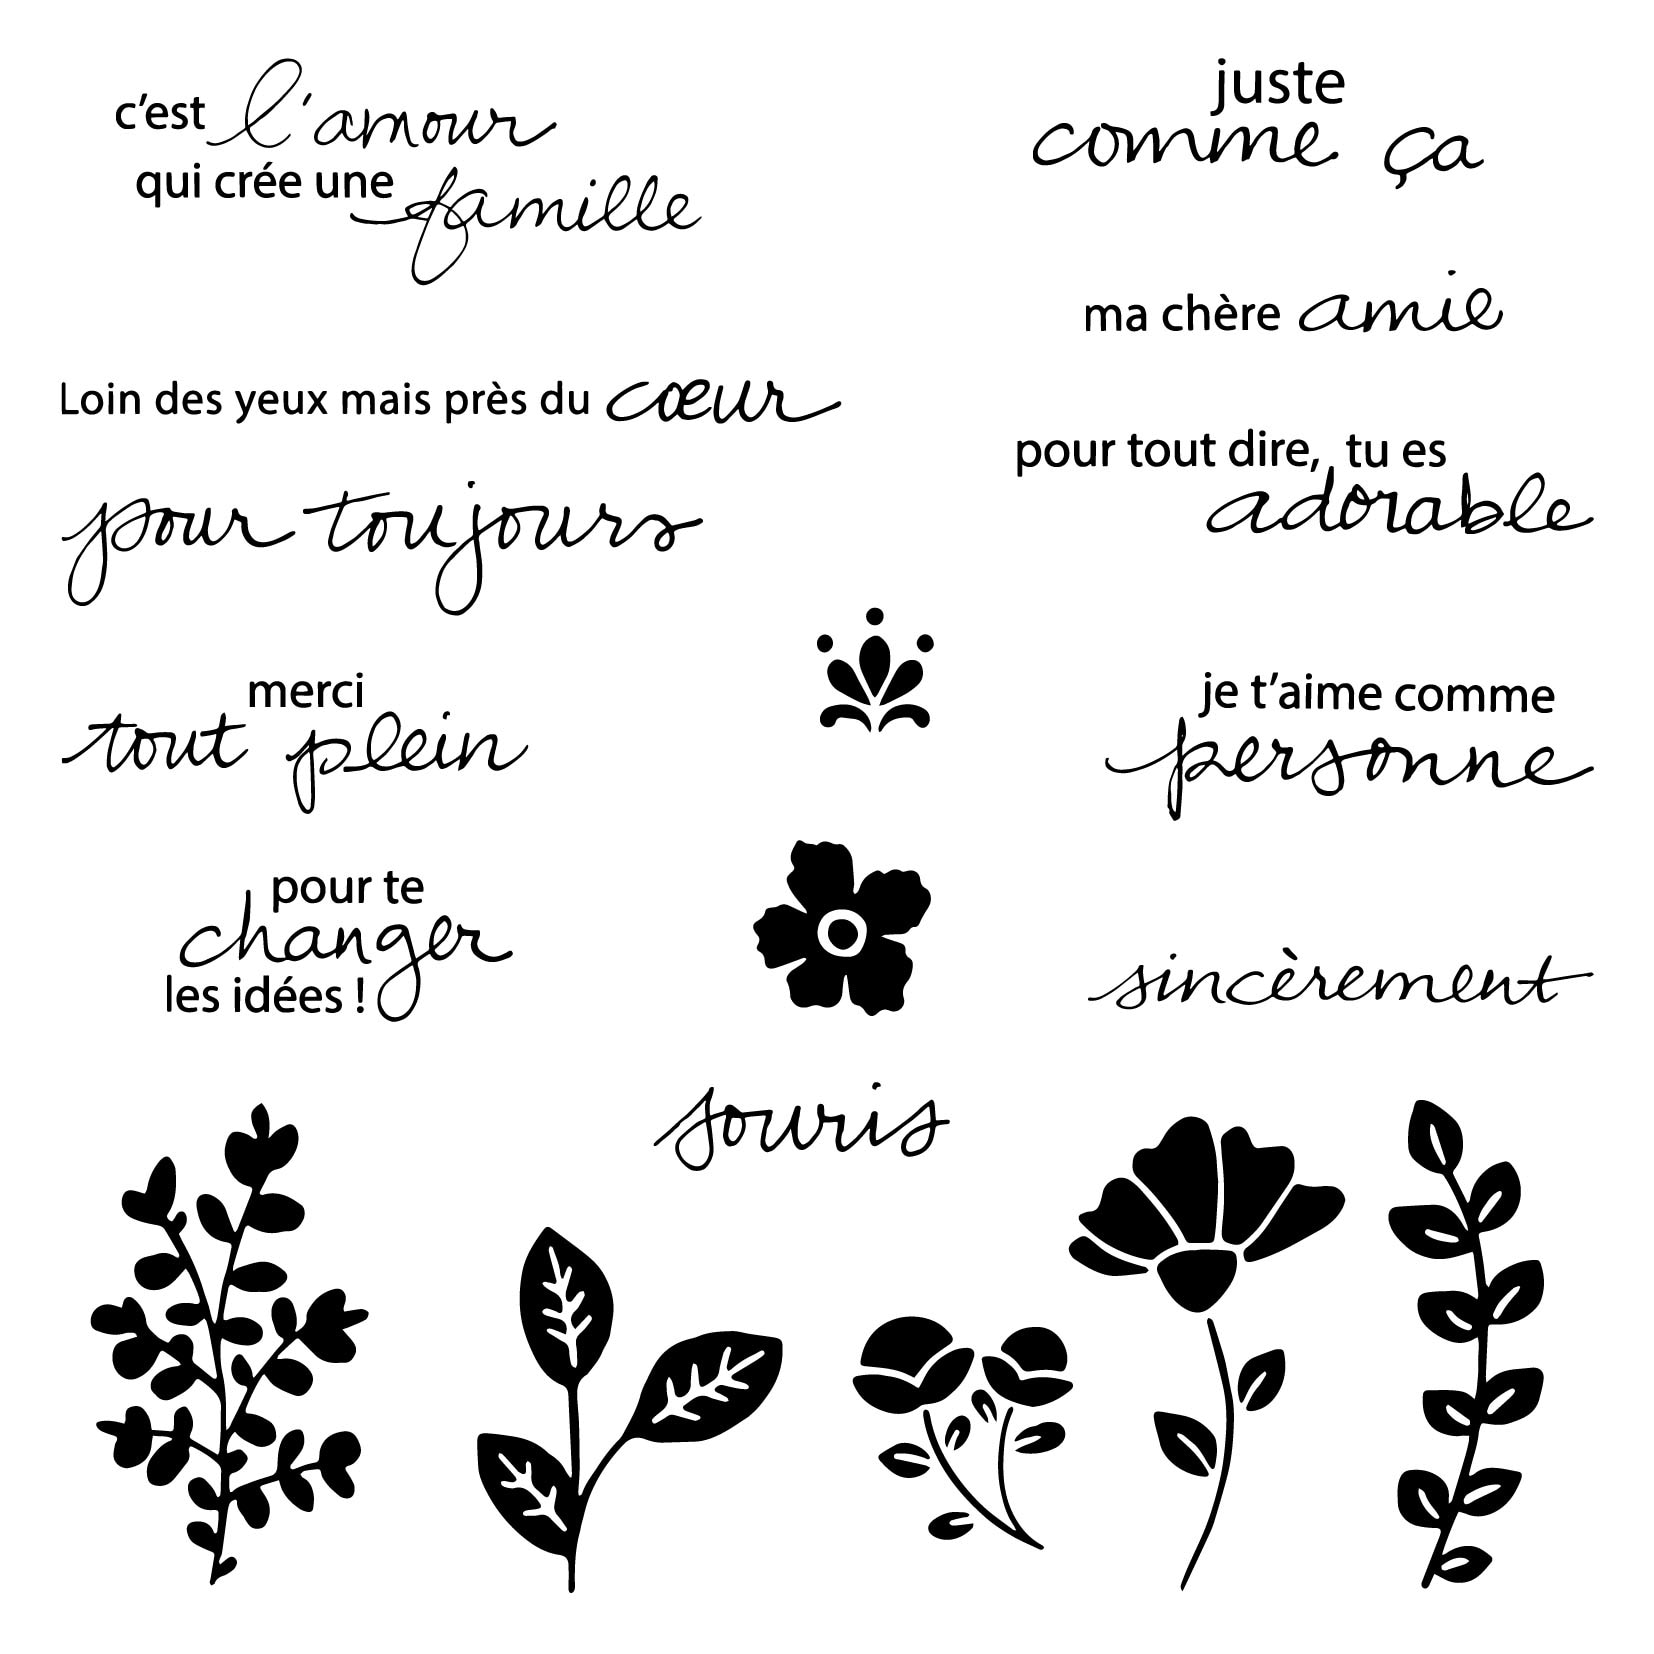 c'est l'amour
qui crée une famille
juste
comme ça
ma chère amie
Loin des yeux mais près du cœur
pour tout dire, tu es
adorable
pour toujours
merci
tout plein
je t'aime comme
personne
pour te
changer
les idées !
sincèrement
souris